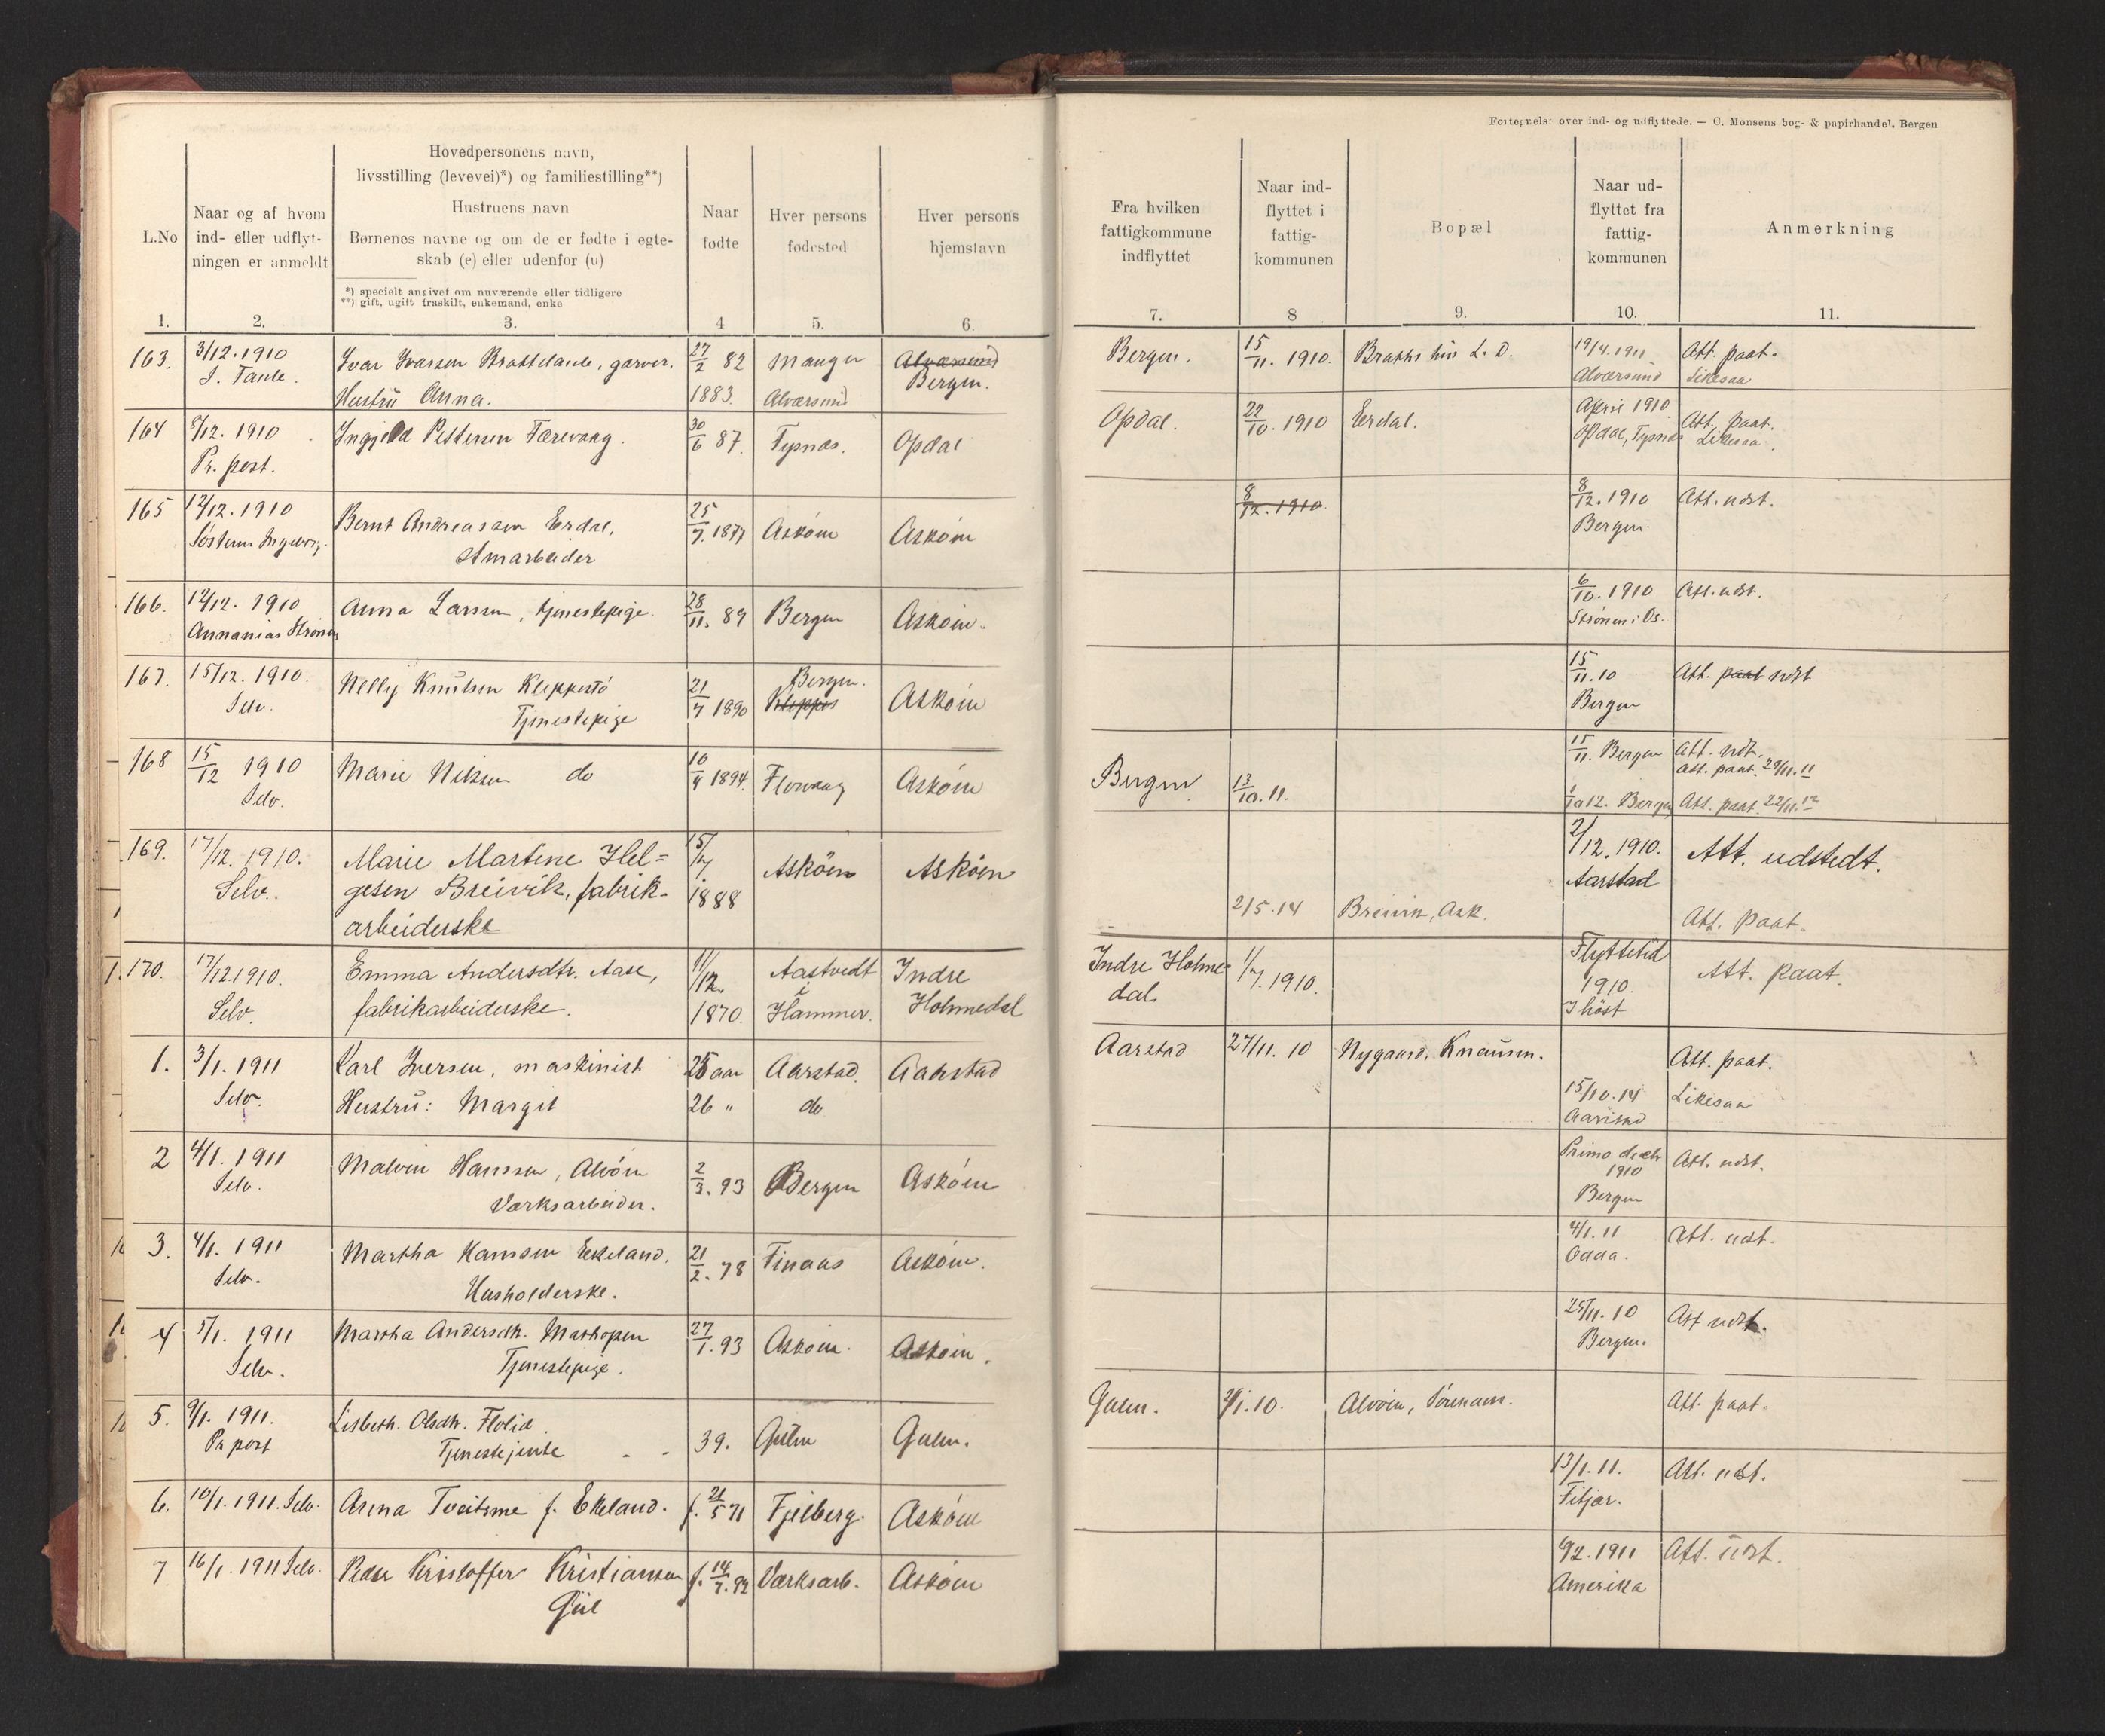 Fortegnelse over ind- og udflyttede. — C. Monsens bog- & papirhandel. Bergen
L.No
Naar og af hvem
ind- eller udflyt-
ningen er anmeldt
Hovedpersonens navn,
livsstilling (levevei)*) og familiestilling**)
Hustruens navn
Børnenes navne og om de er fødte i egte-
skab (e) eller udenfor (u)
*) specielt angivet om nuværende eller tidligere
**) gift, ugift fraskilt, enkemand, enke
Naar
fødte
Hver persons
fødested
Hver persons
hjemstavn
Fra hvilken
fattigkommune
indflyttet
Naar ind-
flyttet i
fattig-
kommunen
Bopæl
Naar ud-
flyttet fra
fattig-
kommunen
Anmerkning
1. 2. 3. 4 5. 6. 7. 8 9. 10. 11.
163. 3/12. 1910 Ivar Ivarsen Brattetaule, garver. 27/2 82 Manger Alværsund Bergen. 15/11. 1910. L. D. 19/4. 1911 Att. paat.
J. Taule. Bergen. Alværsund Likesaa
Hustrü Anna. 1883. Alværsund
164 8/12. 1910 Ingjeld Pettersen Færevaag. 30/6 87. Tysnæs. Opdal Opdal. 22/10. 1910 Erdal. April 1910 Att. paat.
Pr. post. Opdal, Tysnæs Likesaa.
165 12/12. 1910 Bernt Andreassen Erdal, 25/7. 1877 Asköen Asköen 8/12. 1910 8/12. 1910 Att. udst.
Søsteren Ingeborg. Bergen.
166. 12/12. 1910 Anna Larsen, tjenestepige. 28/11. 89 Bergen Asköen. 6/10. 1910 Att. udst.
Annanias Strønen Strønen i Os.
167. 15/12. 1910. Nelly Knutsen Kleppestö 21/7 1890 Bergen. Kleppes Asköen 15/11. 10 Att. paat udst
Selv. Tjenestepige Bergen
168 15/12 1910 Marie Nilsen do 10/9 1894. Florvaag Asköen Bergen 13/10. 11. 15/11. Bergen Att. udt.
Selv. Att. paat. 29/11. 11
1/10 12. Bergen Att. paat. 22/11. 12
169. 17/12. 1910. Marie Martine Hel= 15/7 Asköen Asköen 2/12. 1910. Att. udstedt.
Selv. gesen Breivik, fabrik- 1888 Aarstad
arbeiderske 2/5. 14 Breivik, Ask. Att. paat.
170. 17/12 1910. Emma Andersdtr. Aase, 11/12. Aastvedt Indre Indre Holme- 1/7. 1910. Flyttetid Att. paat.
Selv. fabrikarbeiderske. 1870. i Hammer. Holmedal dal. 1910.
I höst
1. 3/1. 1911 Karl Iversen, maskinist 25 aar Aarstad. Aarstad Aarstad 27/11. 10 Nygaard, Knausen. Att. paat.
Selv. Hustrü: Margit 26 " do 15/10. 14 Likesaa
Aarstad
2 4/1. 1911 Malvin Hanssen, Alvöen 2/3. 93 Bergen Asköen Primo decbr Att. udst.
Selv. Værksarbeider. 1910
Bergen
3. 4/1. 1911 Martha Hanssen Ekeland. 21/2. 78 Finaas Asköen. 4/1. 11 Att. udst.
Selv. Husholderske. Odda.
4 5/1. 1911 Martha Andersdtr. Mathopen 27/1. 93 Asköen. Asköen. 25/11. 10 Att udst.
Selv. Tjenestepige. Bergen.
5. 9/1. 1911. Lisbeth. Olsdtr. Flolid. 39. Gulen Gulen. Gulen. 2/1. 10. Alvöen Att. paat.
Pr post Tjenestejente
6. 10/1. 1911. Selv. Anna Tveitsme f. Ekeland. f. 21/5 71 Fjelberg. Asköen 13/1. 11. Att. udst.
Fitjar.
7 16/1. 1911 Selv. Peder Kristoffer Kristiansen f. 14/7. 92 Værksarb. Asköen 9/2. 1911 Att. udst.
Amerika